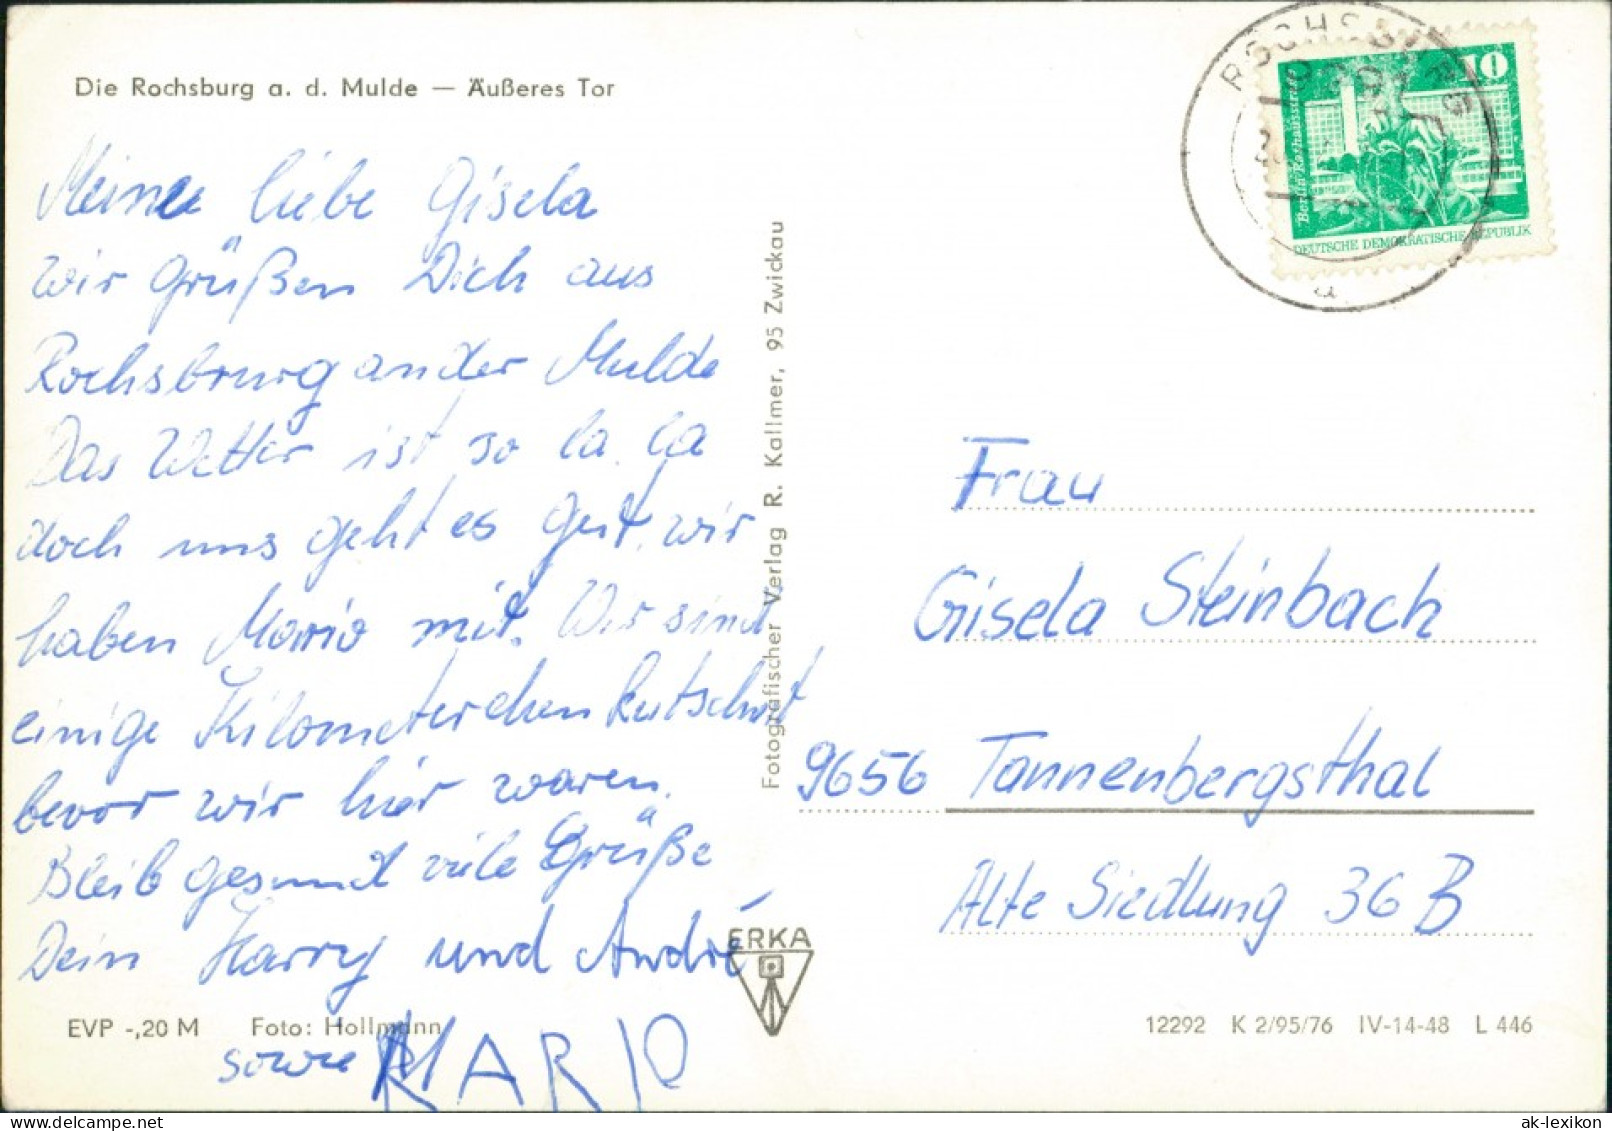 Die Rochsburg a. d. Mulde — Äußeres Tor
Meine liebe Gisela
wir grüßen Dich aus
Rochsbrurg an der Mulde
Das Wetter ist so la la
doch uns geht es gut, wir
haben Mario mit. Wir sind
einige Kilometerchen kutschirt
bevor wir hier waren.
Bleib gesund viele Grüße
Dein Harry und André
sowie MARIO
EVP -,20 M Foto: Hollmann
Fotografischer Verlag R. Kallmer, 95 Zwickau
ERKA
ROCHSBURG
a
10
Berlin Rathausstraße
DEUTSCHE DEMOKRATISCHE REPUBLIK
Frau
Gisela Steinbach
9656 Tannenbergsthal
Alte Siedlung 36 B
12292 K 2/95/76 IV-14-48 L 446
ak-lexikon.com